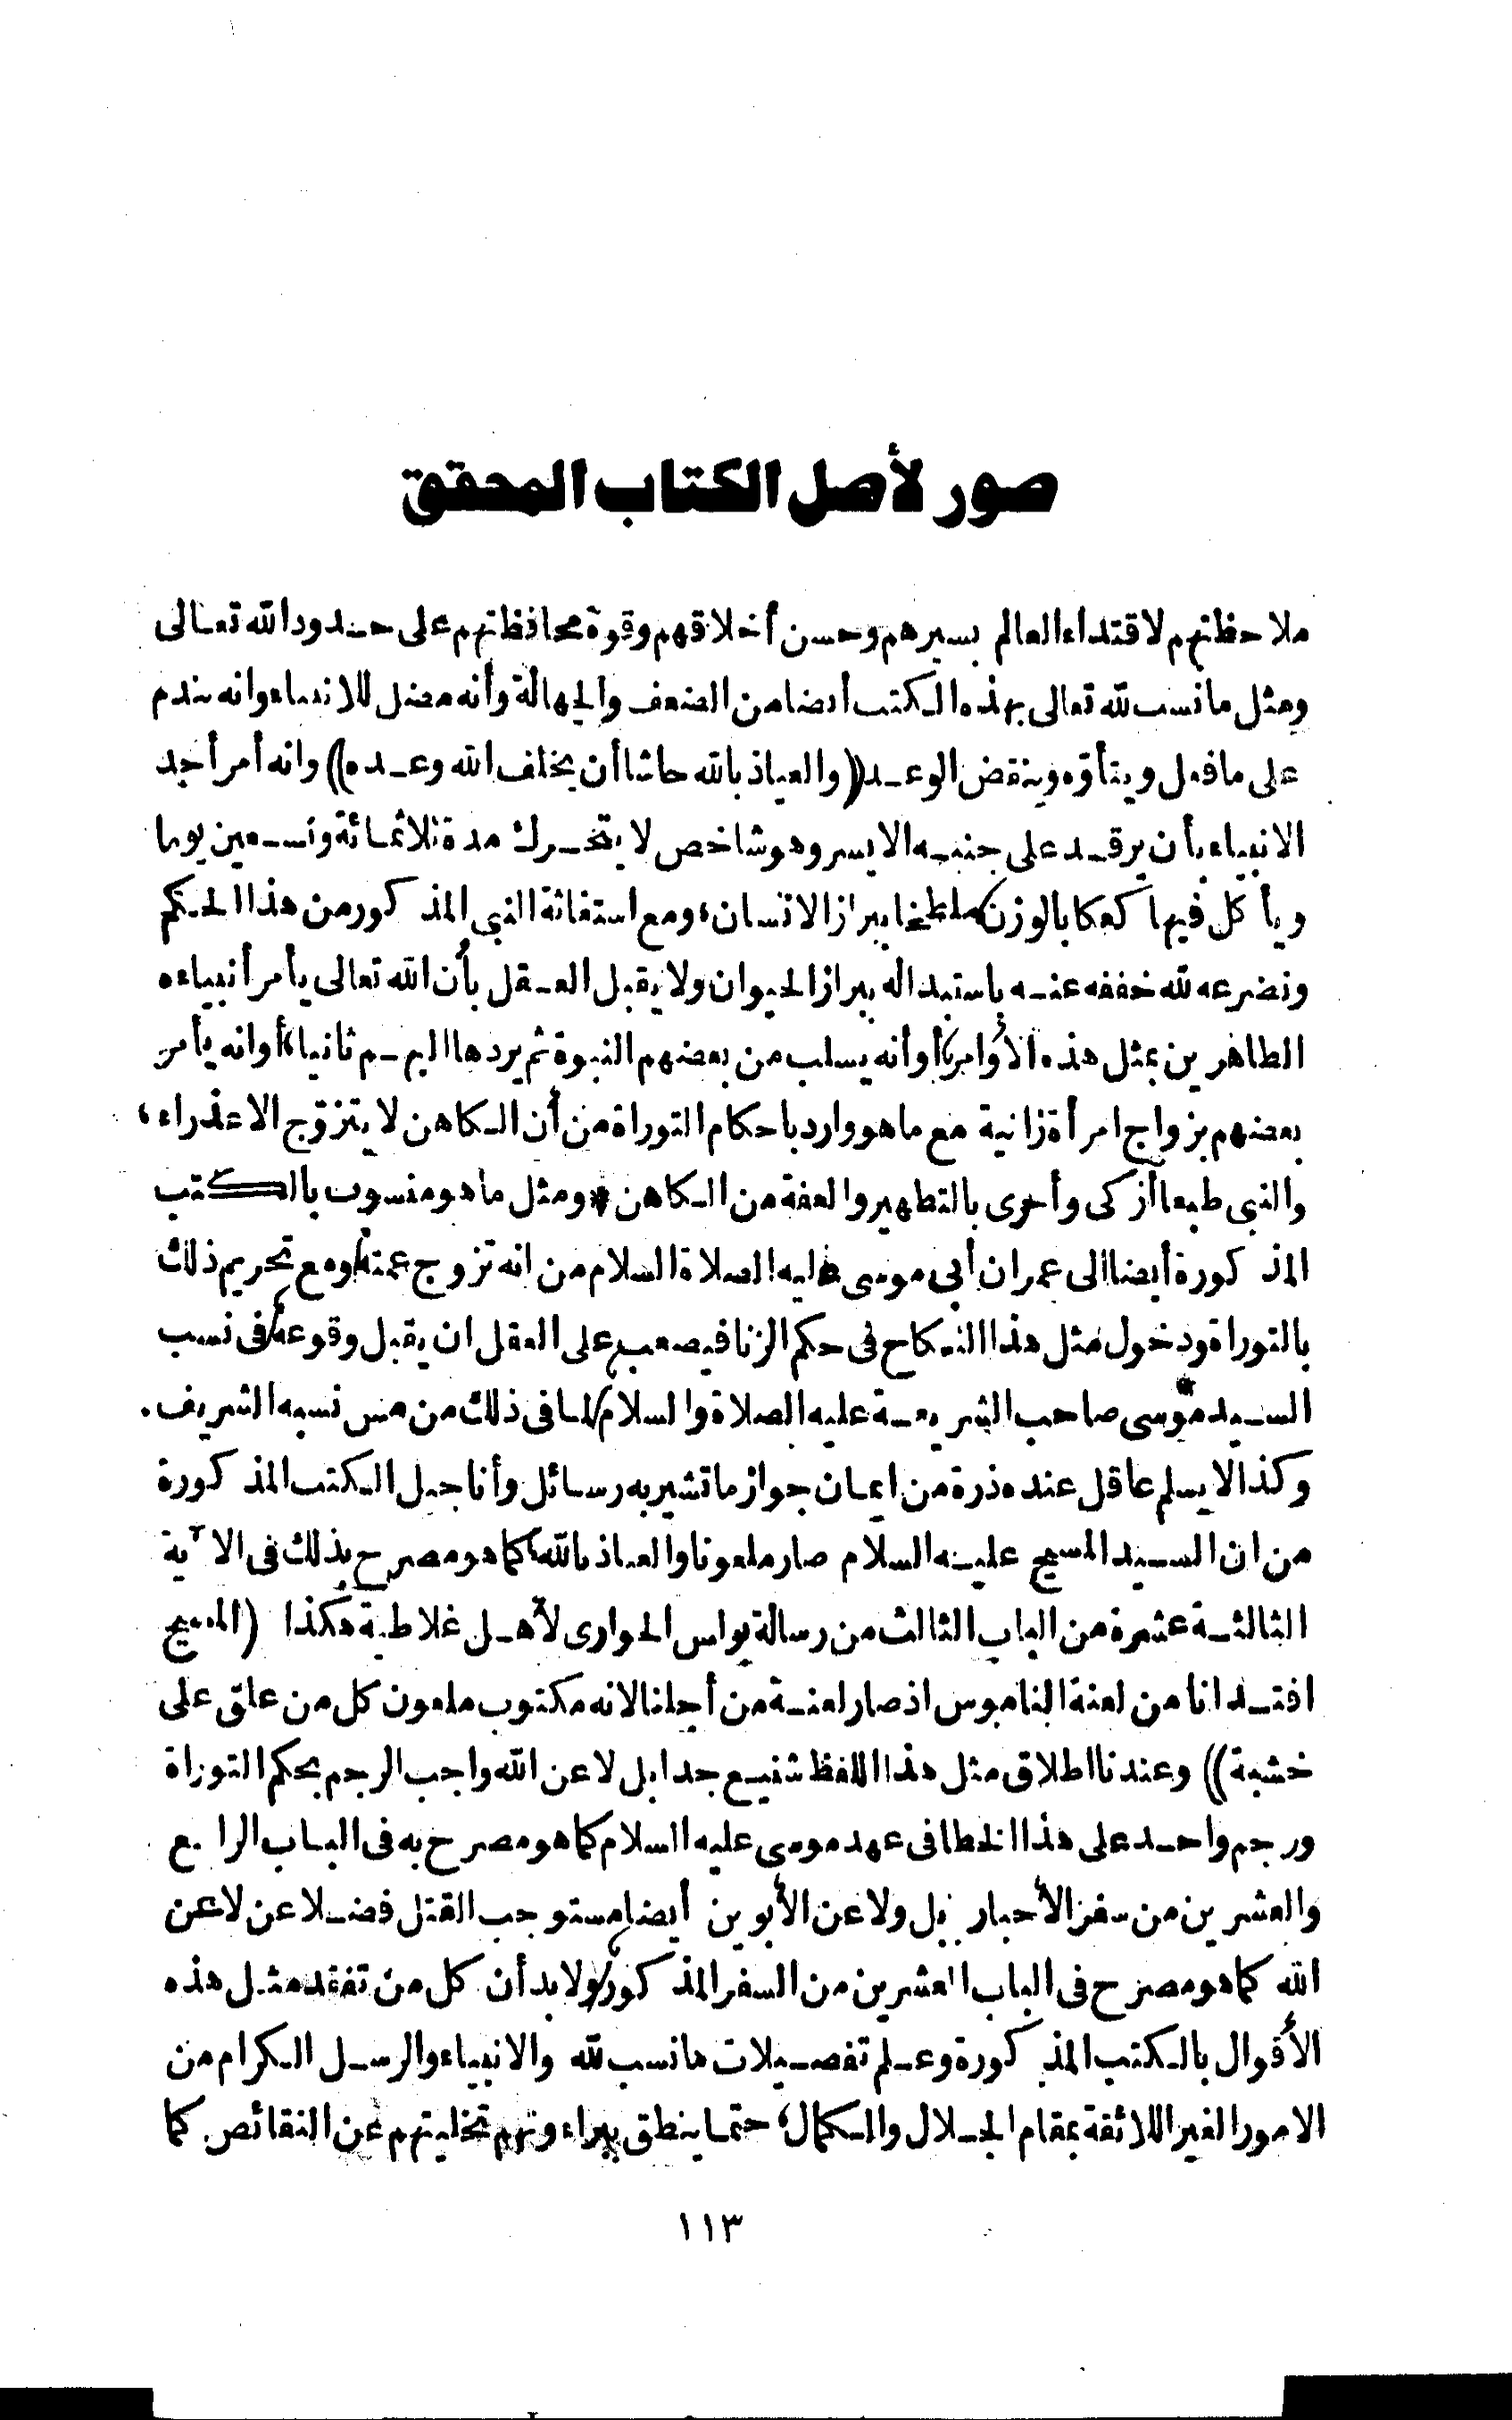 صور لأصل الكتاب المحقق
ملاحظتهم لاقتداء العالم بسيرهم وحسن أخلاقهم وقوة محافظتهم على حدود الله تعالى
ومثل ما نسب لله تعالى بهذه الكتب أيضا من الضعف والجهالة وأنه مضل للانبياء وانه يندم
على ما فعل ويتأوه وينقض الوعد ((والعياذ بالله حاشا أن يخلف الله وعده)) وانه أمر أحد
الانبياء بأن يرقد على جنبه الايسر وهو شاخص لا يتحرك مدة ثلاثمائة وتسعين يوما
ويأكل فيها كعكا بالوزن ملطخا ببراز الانسان، ومع استغاثة النبي المذكور من هذا الحكم
وتضرعه لله خففه عنه باستبداله ببراز الحيوان ولا يقبل العقل بأن الله تعالى يأمر أنبياءه
الطاهرين بمثل هذه الأوامر، أو أنه يسلب من بعضهم النبوة ثم يردها اليهم ثانيا، أو انه يأمر
بعضهم بزواج امرأة زانية مع ما هو وارد باحكام التوراة من أن الكاهن لا يتزوج الا عذراء،
والنبي طبعا أزكى وأحرى بالتطهير والعفة من الكاهن * ومثل ما هو منسوب بالكتب
المذكورة أيضا الى عمران أبي موسى عليه الصلاة السلام من انه تزوج عمته، ومع تحريم ذلك
بالتوراة ودخول مثل هذا النكاح في حكم الزنا فيصعب على العقل ان يقبل وقوعه في نسب
السيد موسى صاحب الشريعة عليه الصلاة والسلام لما في ذلك من مس نسبه الشريف.
وكذا لا يسلم عاقل عنده ذرة من ايمان جواز ما تشير به رسائل وأناجيل الكتب المذكورة
من ان السيد المسيح عليه السلام صار ملعونا والعياذ بالله، كما هو مصرح بذلك في الآية
الثالثة عشرة من الباب الثالث من رسالة بولس الحوارى لأهل غلاطية هكذا (المسيح
افتدانا من لعنة الناموس اذ صار لعنة من أجلنا لانه مكتوب ملعون كل من علق على
خشبة)) وعندنا اطلاق مثل هذا اللفظ شنيع جدا بل لاعن الله واجب الرجم بحكم التوراة
ورجم واحد على هذا الخطا في عهد موسى عليه السلام كما هو مصرح به في الباب الرابع
والعشرين من سفر الأحبار بل ولاعن الأبوين أيضا مستوجب القتل فضلا عن لاعن
الله كما هو مصرح في الباب العشرين من السفر المذكور، ولا بد أن كل من تفقد مثل هذه
الأقوال بالكتب المذكورة وعلم تفصيلات ما نسب لله والانبياء والرسل الكرام من
الامور الغير اللائقة بمقام الجلال والكمال، حتما ينطق ببراءتهم تخليتهم عن النقائص. كما
١١٣